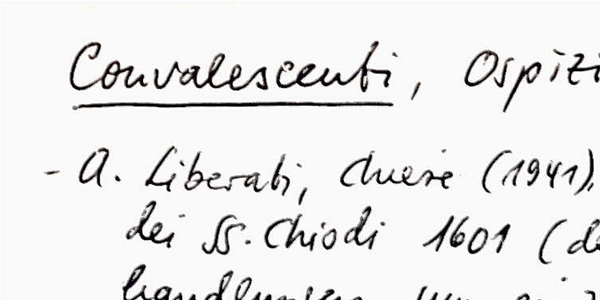 Convalescenti, Ospizi
- A. Liberati, Chiese (1941),
dei SS. Chiodi 1601 (de
handlungen